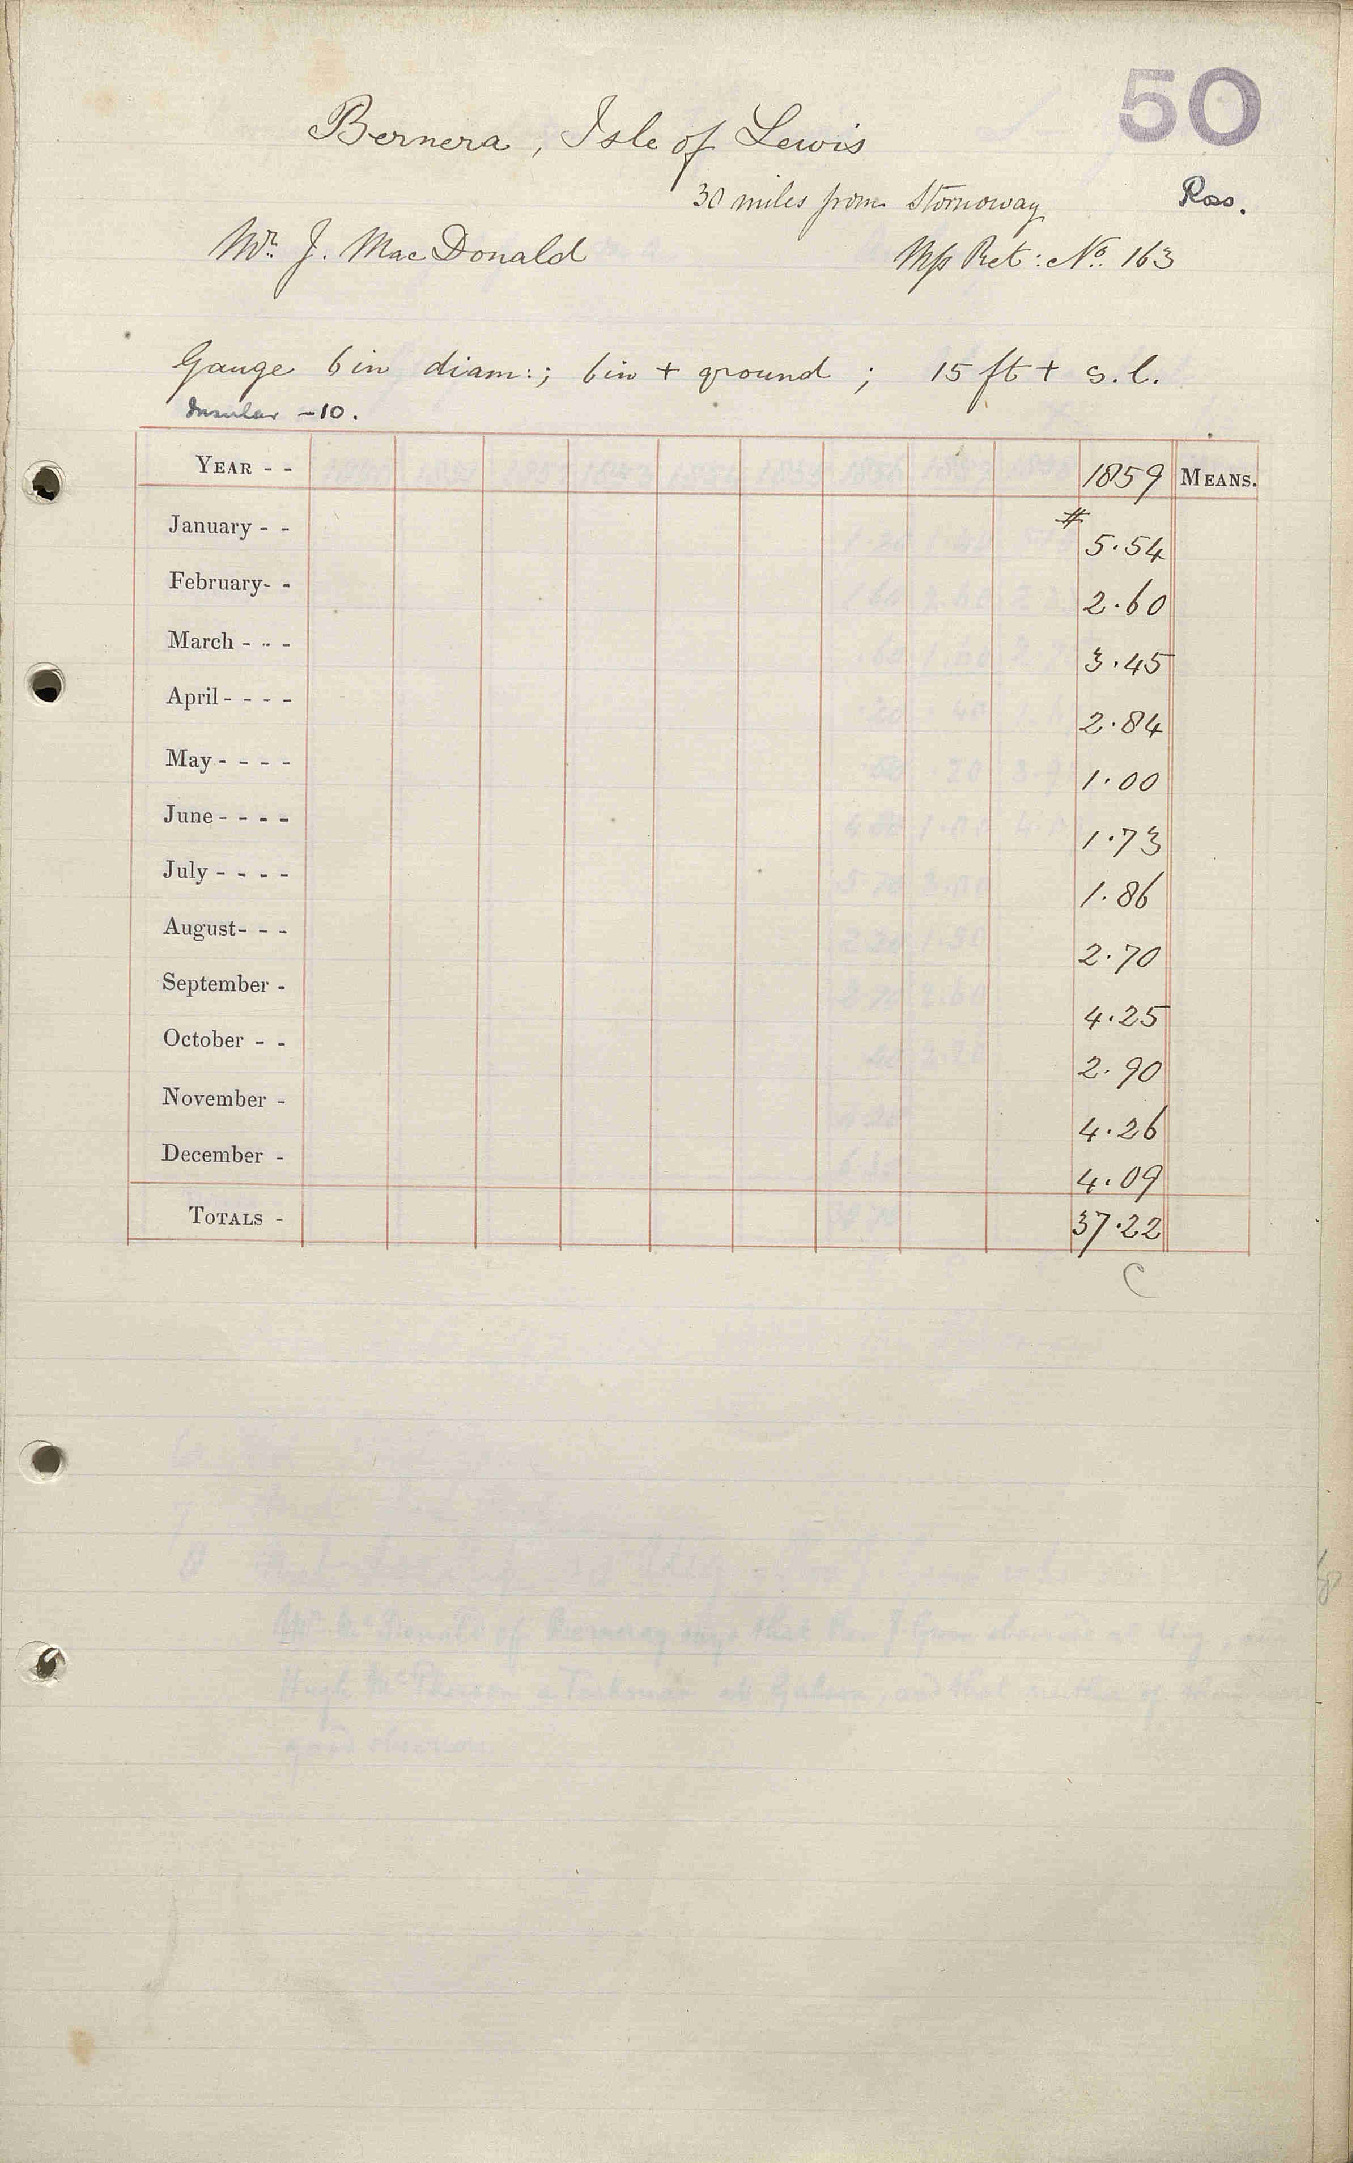 50
Bernera, Isle of Lewis
30 miles from Stornoway
Ross.
Mr. J. MacDonald
Mss Ret: No. 163
Gauge 6 in diam:; 6in + ground; 15 ft + s.l.
Insular -10.
YEAR - - 1859 MEANS.
January - - # 5.54
February- - 2.60
March - - - 3.45
April - - - - 2.84
May - - - - 1.00
June - - - - 1.73
July - - - - 1.86
August- - - 2.70
September - 4.25
October - - 2.90
November - 4.26
December - 4.09
TOTALS - 37.22
C